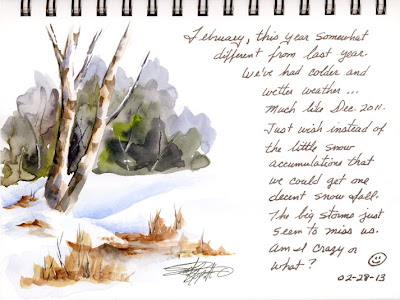 February, this year somewhat
different from last year.
We've had colder and
wetter weather...
Much like Dec. 2011.
Just wish instead of
the little snow
accumulations that
we could get one
decent snow fall.
The big storms just
seem to miss us.
Am I crazy or
what?
02-28-13